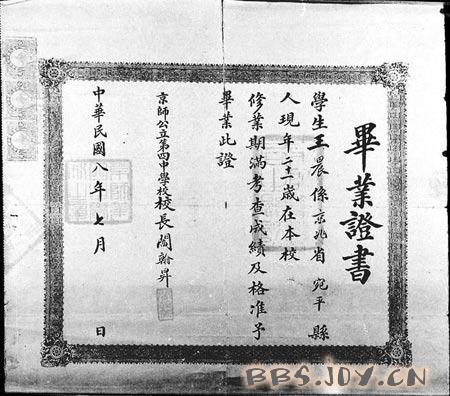 畢業證書
學生王晨係京兆省宛平縣
人現年二十一歲在本校
修業期滿考查成績及格准予
畢業此證
京師公立第四中學校校長閻翰昇
中華民國八年七月 日
BBS.JOY.CN